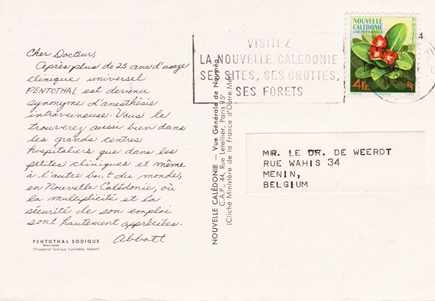 Cher Docteur,
Après plus de 25 ans d'usage
clinique universel
PENTOTHAL est devenu
synonyme d'anesthésie
intraveineuse. Vous le
trouverez aussi bien dans
les grands centres
hospitaliers que dans les
petites cliniques et même
à l'autre bout du monde,
en Nouvelle Calédonie, où
la multiplicité et la
sécurité de son emploi
sont hautement appréciées.
Abbott
PENTOTHAL SODIQUE
(Thiopental Sodique Injectable, Abbott)
NOUVELLE CALÉDONIE — Vue Générale de Nouméa
C.A.P., 44, Rue Letellier, Paris 15e
(Cliché Ministère de la France d'Outre-Mer)
VISITEZ
LA NOUVELLE CALEDONIE
SES SITES, SES GROTTES,
SES FORETS
NOUVELLE
CALÉDONIE
4F
MR. LE DR. DE WEERDT
RUE WAHIS 34
MENIN,
BELGIUM